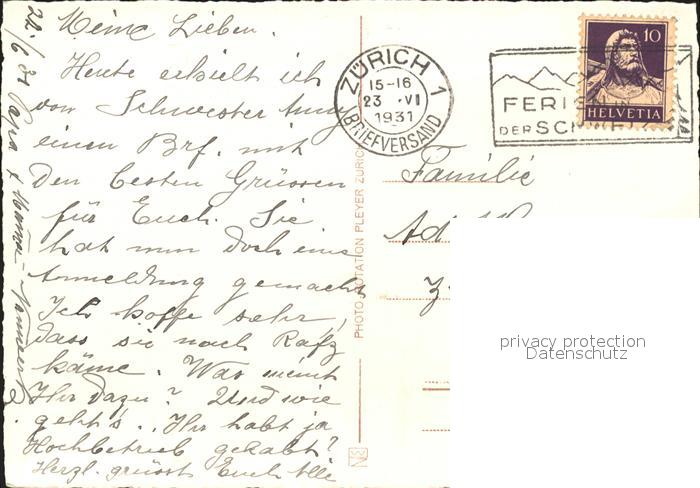 Meine Lieben.
Heute erhielt ich
von Schwester Anny
einen Brf. mit
den besten Grüssen
für Euch. Sie
hat nun doch eine
Anmeldung gemacht
Ich hoffe sehr,
dass sie nach Rafz
käme. Was meint
Ihr dazu? Und wie
geht's. Ihr habt ja
Hochbetrieb gehabt?
Herzl. grüsst Euch Alle
22./6 31 Papa & Mama
ZÜRICH 1
15-16
23.VI
1931
BRIEFVERSAND
FERIEN IN
DER SCHWEIZ
10
HELVETIA
PHOTO-ROTATION PLEYER ZURICH
Familie
Ad
Z.
privacy protection
Datenschutz